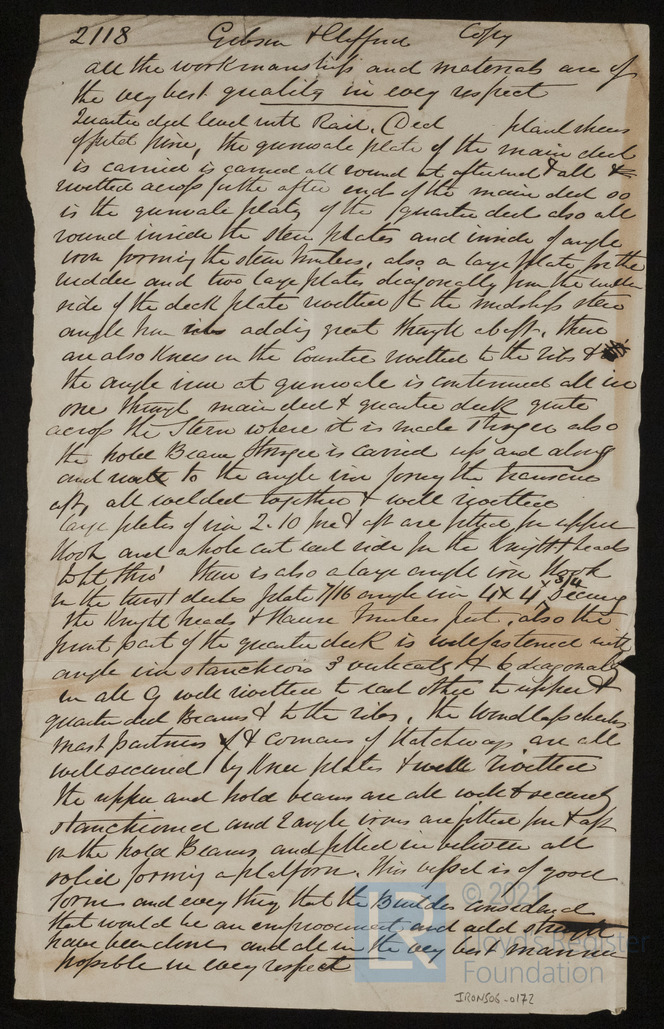 2118 Gibson & Clifford Copy
all the workmanship and materials are of
the very best quality in every respect
Quarter deck level with Rail. Deck plank sheers
of pitch pine, the gunwale plate of the main deck
is carried is carried all round at after end & all
rivetted across further after end of the main deck so
is the gunwale plate of the quarter deck also all
round inside the stern plates and inside of angle
iron forming the stern timbers, also a large plate for the
rudder and two large plates diagonally from the under
side of the deck plate rivetted to the midships stern
angle iron adding great strength abaft, there
are also Knees on the Counter rivetted to the ribs &
the angle iron at gunwale is continued all in
one through main deck & quarter deck quite
across the Stern where it is made stronger also
the hold Beam Stringer is carried up and along
and unite to the angle iron forming the transom
aft, all welded together & well rivetted
large plates of iron 2.10 fore & aft are fitted for upper
hook and a hole cut each side for the Knight heads
to fit thro' there is also a large angle iron hook
in the twixt decks plate 7/16 angle iron 4 x 4 x 3/4 securing
the Knight heads & Hawse timbers fast, also the
front part of the quarter deck is well fastened with
angle iron stanchions 3 verticals & 6 diagonally
in all 9 well rivetted to each other to upper &
quarter deck Beams & to the ribs, the Windlass cheeks
mast partners & corners of Hatchways are all
well secured by Knee plates & well rivetted
the upper and hold beams are all well & securely
stanchioned and 2 angle irons are fitted fore & aft
on the hold Beams and filled in between all
solid forming a platform. This vessel is of good
form and every thing that the Builder considered
that would be an improovement and add strength
have been done and all in the very best manner
possible in every respect
IRON506-0172
© 2021
Lloyd's Register
Foundation
LR